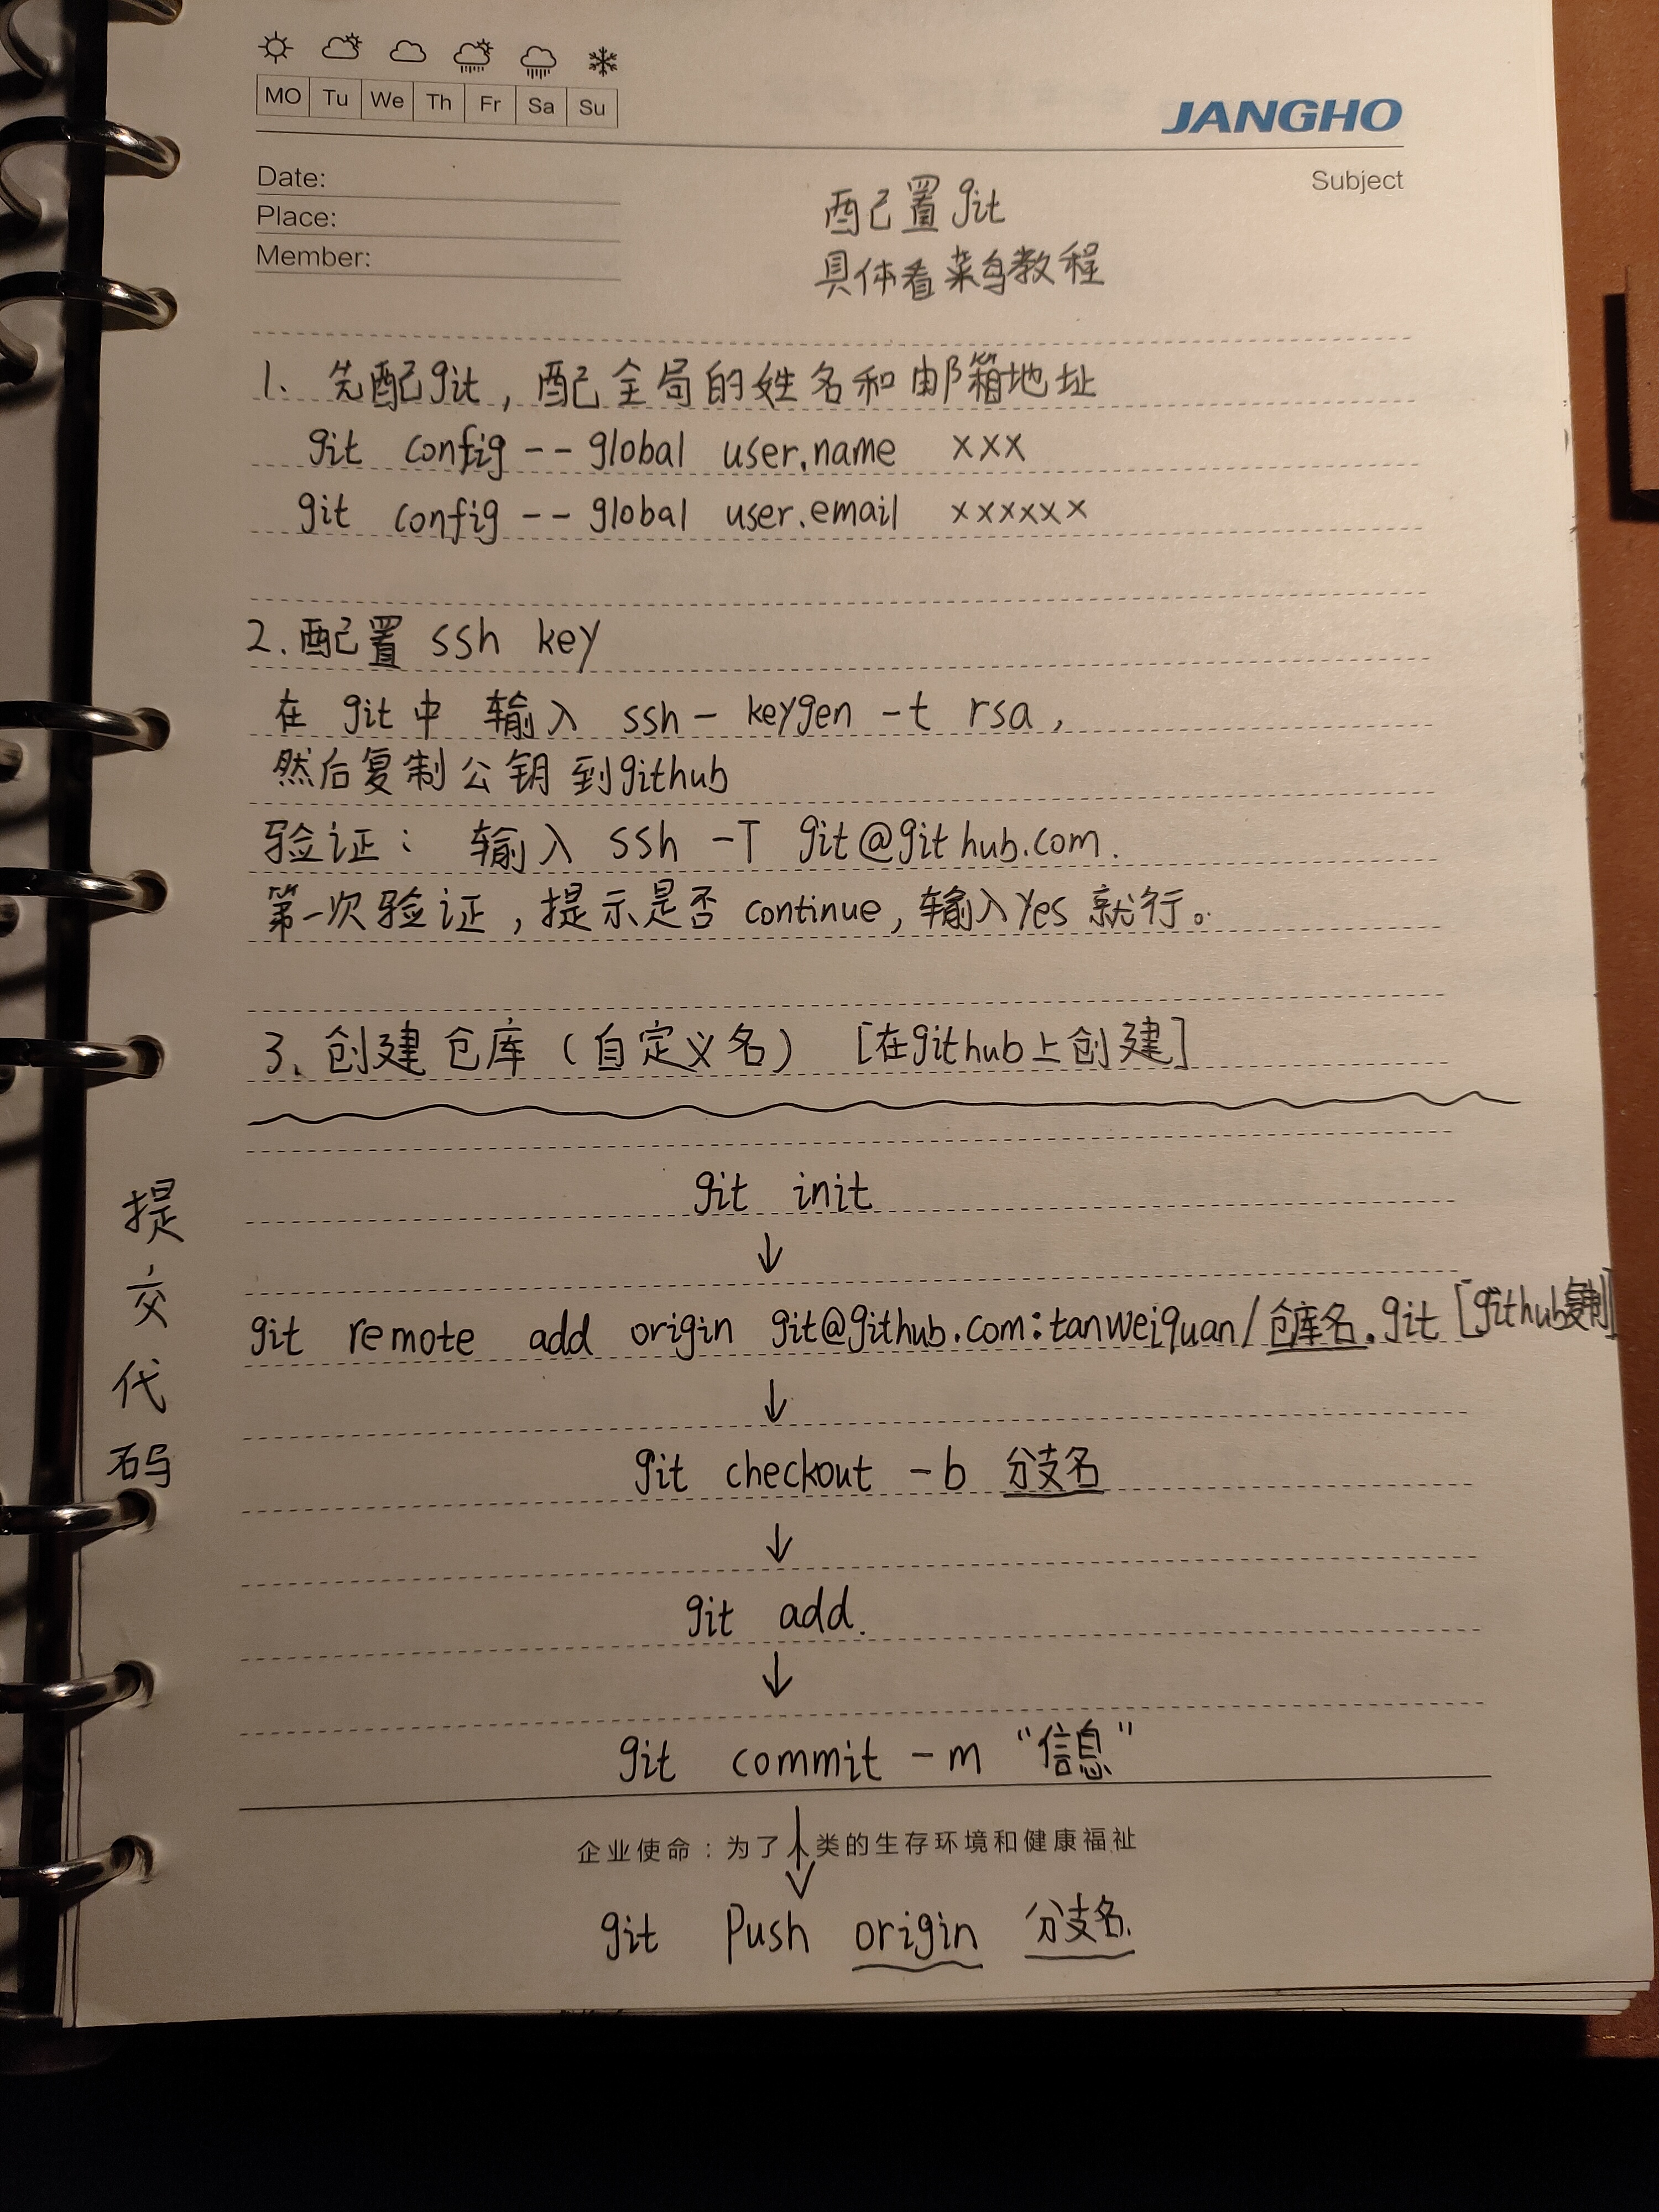 MO Tu We Th Fr Sa Su
JANGHO
Date:
Subject
Place:
Member:
配置git
具体看菜鸟教程
1、先配git，配全局的姓名和邮箱地址
git config -- global user.name xxx
git config -- global user.email xxxxxx
2.配置 ssh key
在 git中 输入 ssh - keygen -t rsa，
然后复制公钥到github
验证： 输入 ssh -T git@github.com.
第一次验证，提示是否 continue，输入Yes 就行。
3、创建仓库（自定义名） [在github上创建]
提交代码
git init
↓
git remote add origin git@github.com:tanweiquan/仓库名.git [github复制]
↓
git checkout -b 分支名
↓
git add.
↓
git commit -m “信息”
↓
企业使命：为了人类的生存环境和健康福祉
git Push origin 分支名.